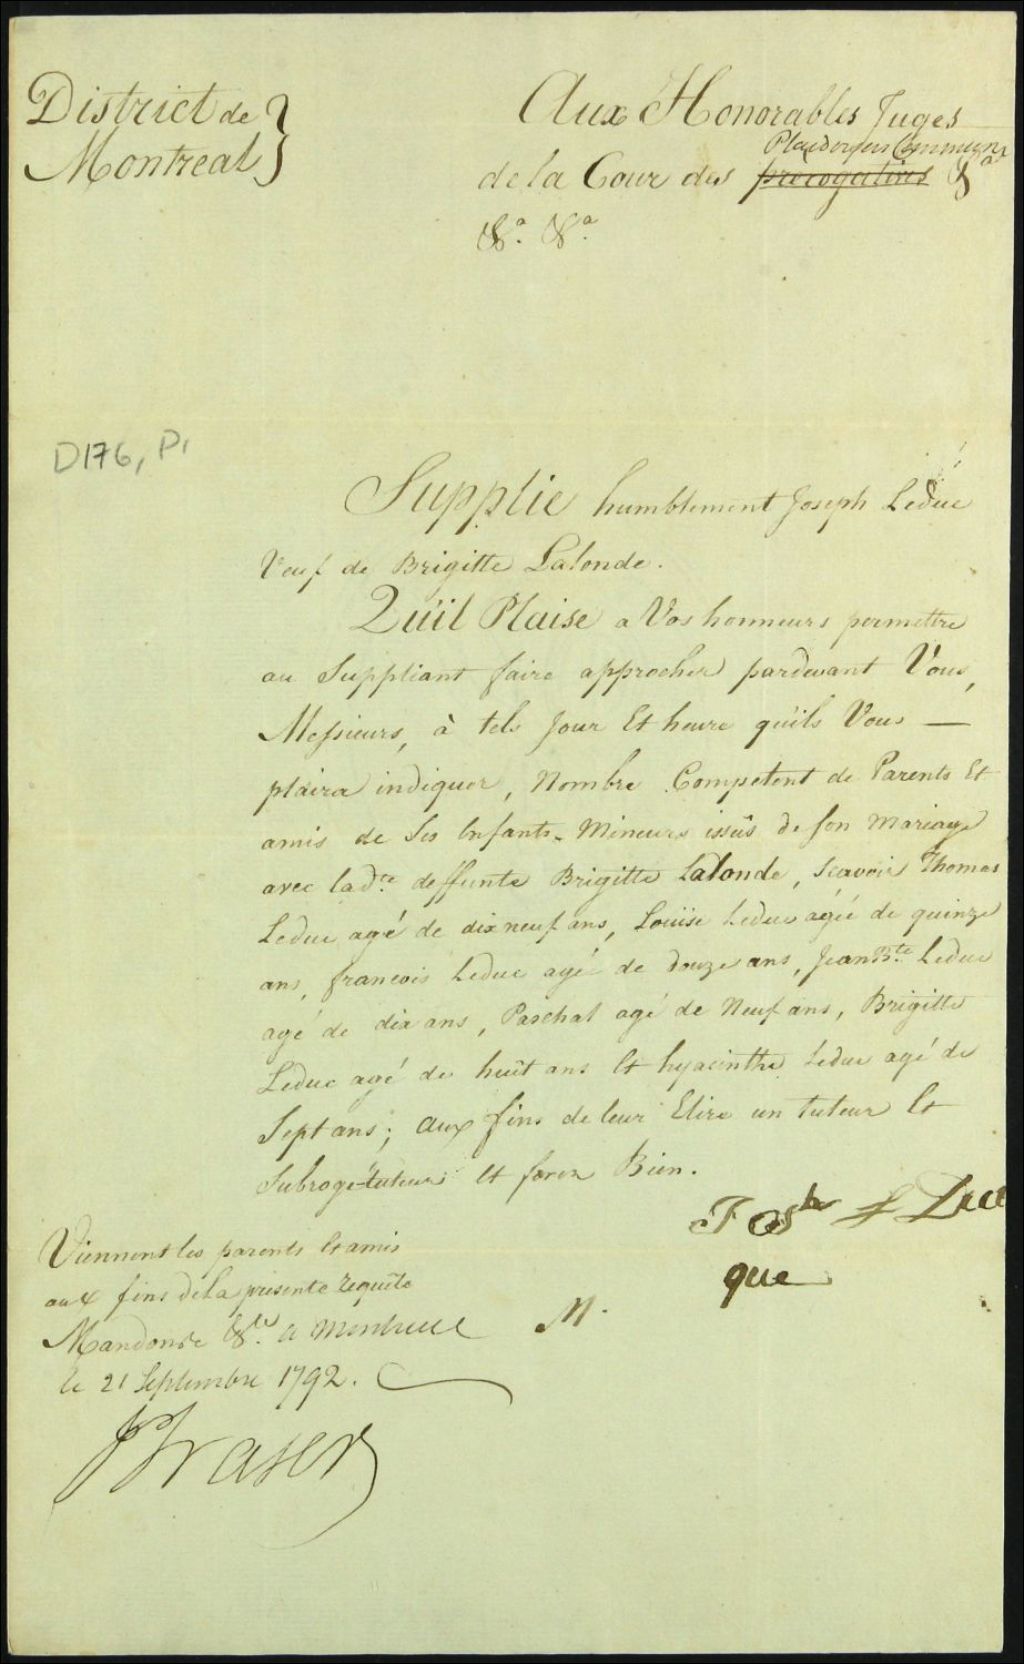 District de }
Montreal }
Aux Honorables Juges
Plaidoyers Communs
de la Cour des prerogatives &a
&a. &a.
D176, P1
Supplie humblement Joseph Leduc
Veuf de Brigitte Lalonde.
Qu'il Plaise a Vos honneurs permettre
au Suppliant faire approcher pardevant Vous,
Messieurs, à tels Jour Et heure qu'ils Vous —
plaira indiquer, Nombre Competent de Parents Et
amis de Ses Enfants Mineurs issûs de Son Mariage
avec lad.te deffunte Brigitte Lalonde, Scavoir Thomas
Leduc agé de dix neuf ans, Loüise Leduc agée de quinze
ans, francois Leduc agé de douze ans, Jean Bte. Leduc
agé de dix ans, Paschal agé de Neuf ans, Brigitte
Leduc agé de huit ans Et hyacinthe Leduc agé de
Sept ans; aux fins de leur Elire un tuteur Et
Subrogé-tuteur Et ferez Bien.
Viennent les parents Et amis
aux fins de la présente requête
Mandons &c. a Montreal
le 21 Septembre 1792.
M.
que
JFraser